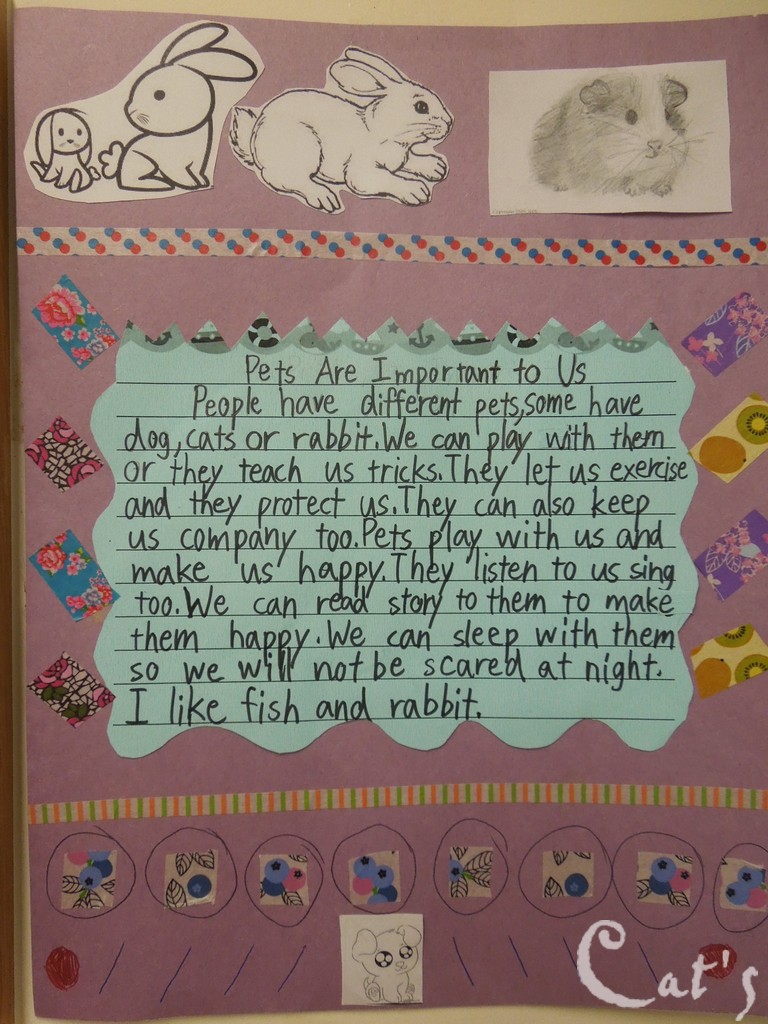 Pets Are Important to Us
People have different pets,some have
dog,cats or rabbit.We can play with them
or they teach us tricks.They let us exercise
and they protect us.They can also keep
us company too.Pets play with us and
make us happy.They listen to us sing
too.We can read story to them to make
them happy.We can sleep with them
so we will not be scared at night.
I like fish and rabbit.
Cat's